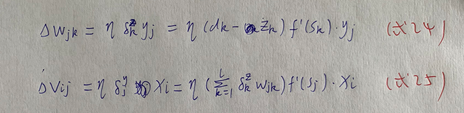 Δwjk = η δkᶻ yj = η (dk - zk) f'(sk)·yj (式24)
Δvij = η δjʸ xi = η (∑ₖ₌₁ˡ δkᶻ wjk) f'(sj)·xi (式25)